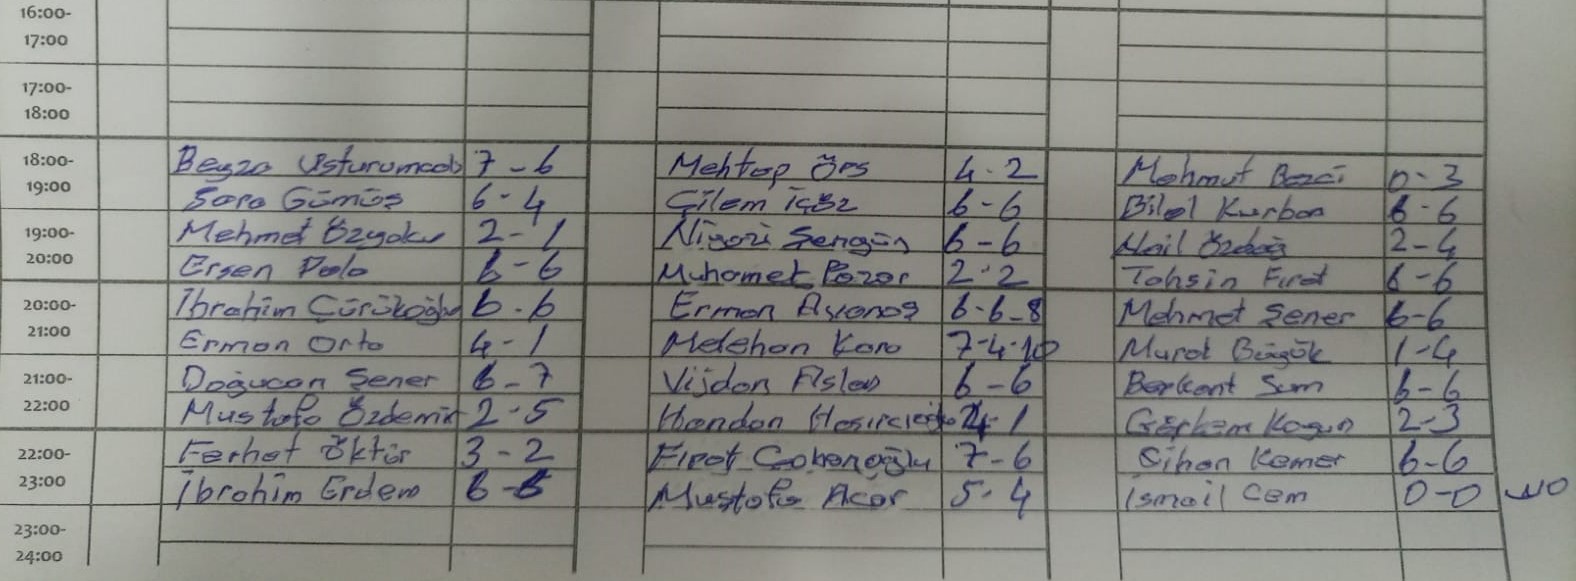 16:00-
17:00
17:00-
18:00
18:00- 7 - 6 Mehtap Örs 4 - 2 Mahmut 0 - 3
19:00 Gümüş 6 - 4 Çilem İçöz 6 - 6 Bilal Kurban 6 - 6
19:00- Mehmet 2 - 1 Niyazi Şengün 6 - 6 Halil Özdağ 2 - 4
20:00 Ersen Pala 6 - 6 Muhamet Pazar 2 - 2 Tahsin Fırat 6 - 6
20:00- İbrahim Çürükoğlu 6 - 6 Erman 6 - 6 - 8 Mehmet Şener 6 - 6
21:00 Erman Orta 4 - 1 Metehan Kara 7 - 4 - 10 Murat Büyük 1 - 4
21:00- Doğucan Şener 6 - 7 Vijdan Aslan 6 - 6 Berkant 6 - 6
22:00 Mustafa Özdemir 2 - 5 Handan Hasırcıoğlu - 1 Görkem 2 - 3
22:00- Ferhat Öktür 3 - 2 Fırat Çobanoğlu 7 - 6 Cihan Kemer 6 - 6
23:00 İbrahim Erdem 6 - Mustafa Acar 5 - 4 İsmail Cem 0 - 0
23:00-
24:00